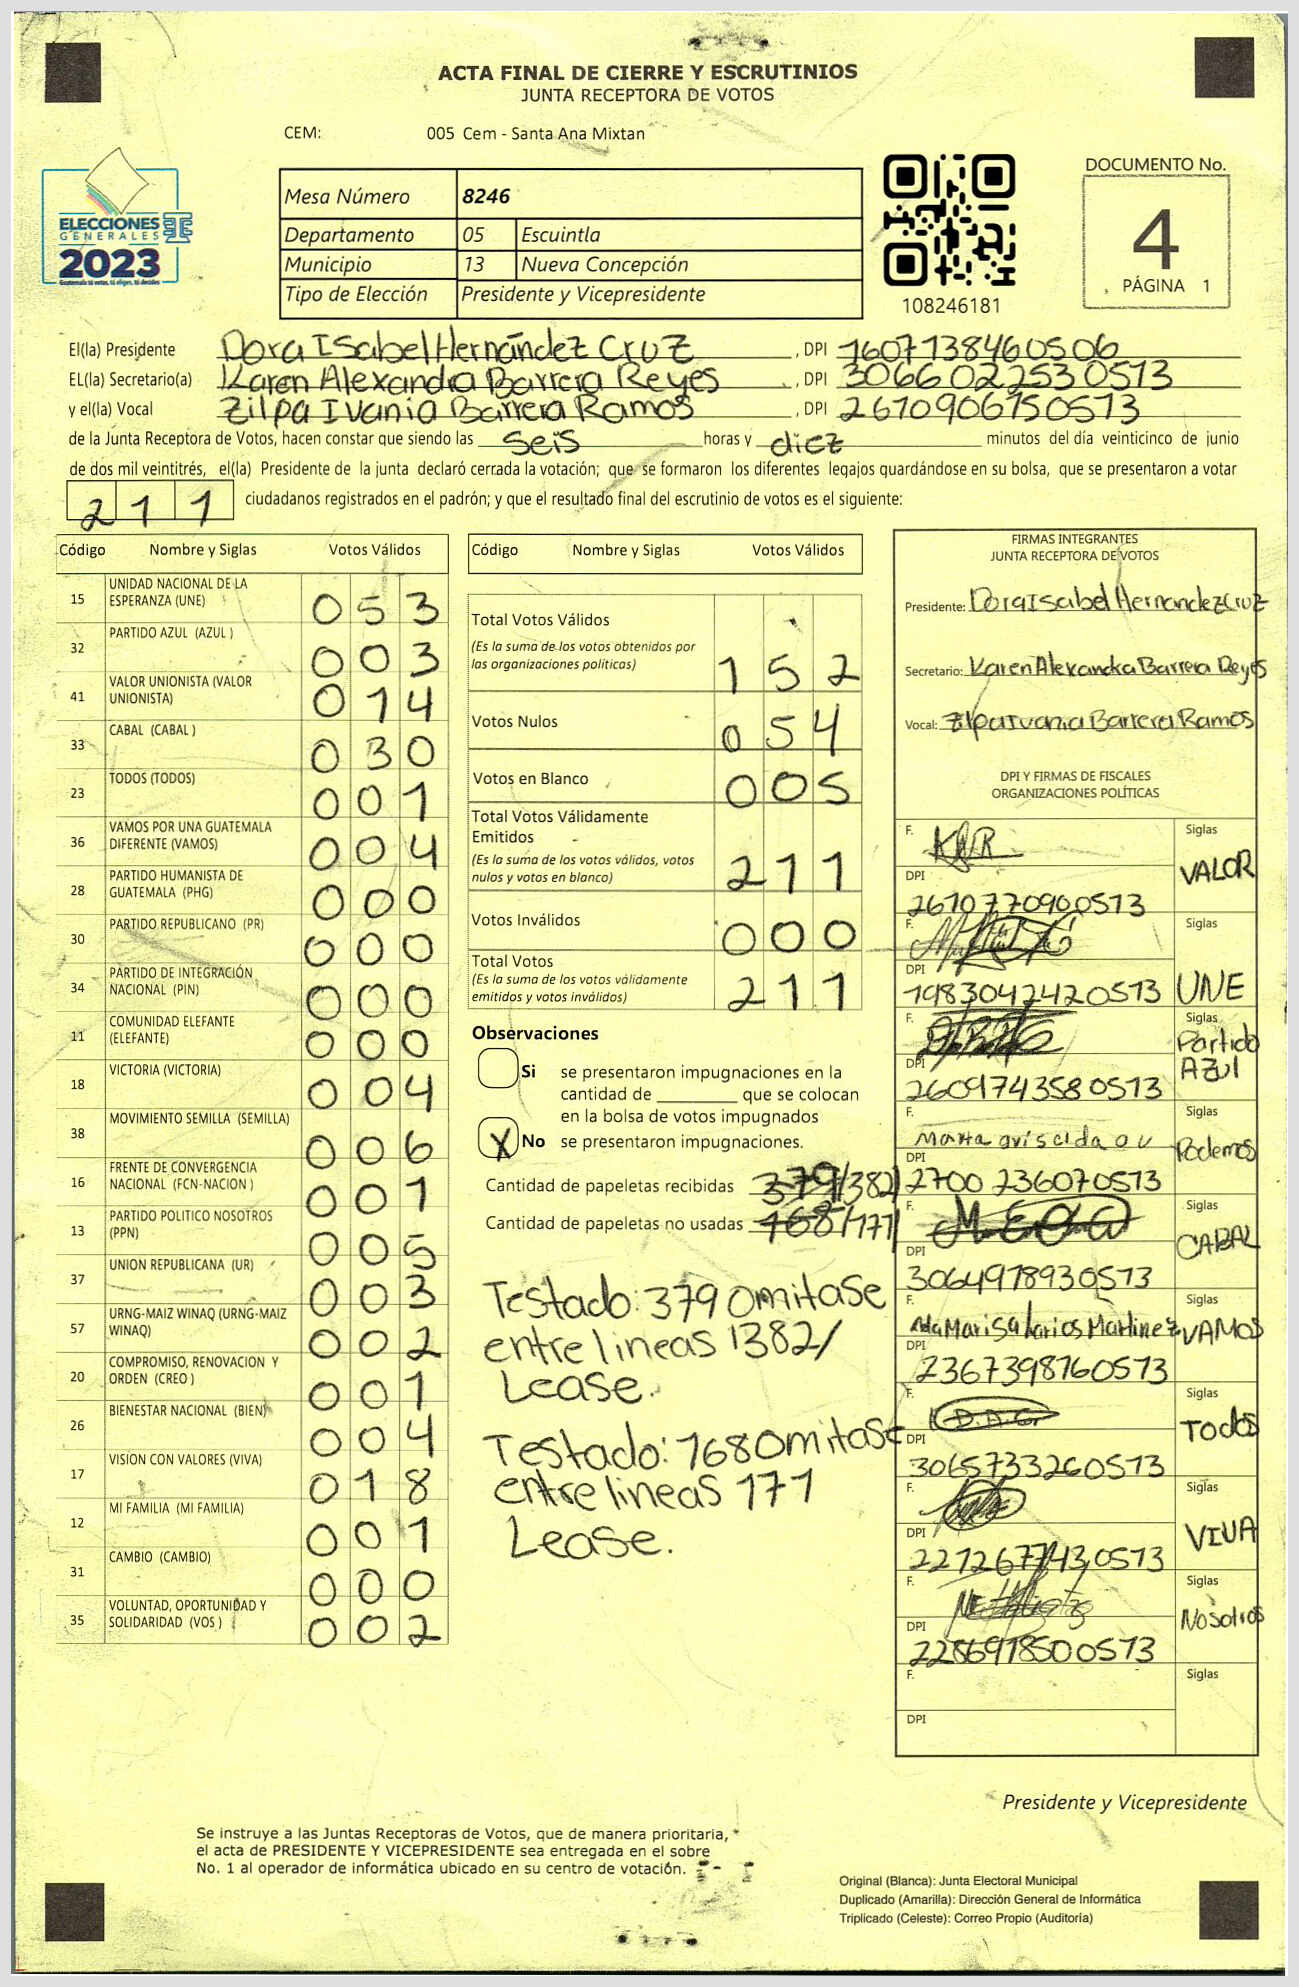 ACTA FINAL DE CIERRE Y ESCRUTINIOS
JUNTA RECEPTORA DE VOTOS
CEM: 005 Cem - Santa Ana Mixtan
ELECCIONES
GENERALES
2023
Guatemala tú votas, tú eliges, tú decides
Mesa Número 8246
Departamento 05 Escuintla
Municipio 13 Nueva Concepción
Tipo de Elección Presidente y Vicepresidente
108246181
DOCUMENTO No.
4
PÁGINA 1
El(la) Presidente Dora Isabel Hernández Cruz, DPI 1607138460506
EL(la) Secretario(a) Karen Alexandra Barrera Reyes, DPI 3066022530513
y el(la) Vocal Zilpa Ivania Barrera Ramos, DPI 2610906150513
de la Junta Receptora de Votos, hacen constar que siendo las seis horas y diez minutos del día veinticinco de junio
de dos mil veintitrés, el(la) Presidente de la junta declaró cerrada la votación; que se formaron los diferentes legajos guardándose en su bolsa, que se presentaron a votar
211 ciudadanos registrados en el padrón; y que el resultado final del escrutinio de votos es el siguiente:
Código Nombre y Siglas Votos Válidos
15 UNIDAD NACIONAL DE LA ESPERANZA (UNE) 053
32 PARTIDO AZUL (AZUL ) 003
41 VALOR UNIONISTA (VALOR UNIONISTA) 014
33 CABAL (CABAL ) 030
23 TODOS (TODOS) 001
36 VAMOS POR UNA GUATEMALA DIFERENTE (VAMOS) 004
28 PARTIDO HUMANISTA DE GUATEMALA (PHG) 000
30 PARTIDO REPUBLICANO (PR) 000
34 PARTIDO DE INTEGRACIÓN NACIONAL (PIN) 000
11 COMUNIDAD ELEFANTE (ELEFANTE) 000
18 VICTORIA (VICTORIA) 004
38 MOVIMIENTO SEMILLA (SEMILLA) 006
16 FRENTE DE CONVERGENCIA NACIONAL (FCN-NACION ) 001
13 PARTIDO POLITICO NOSOTROS (PPN) 005
37 UNION REPUBLICANA (UR) 003
57 URNG-MAIZ WINAQ (URNG-MAIZ WINAQ) 002
20 COMPROMISO, RENOVACION Y ORDEN (CREO ) 001
26 BIENESTAR NACIONAL (BIEN) 004
17 VISION CON VALORES (VIVA) 018
12 MI FAMILIA (MI FAMILIA) 001
31 CAMBIO (CAMBIO) 000
35 VOLUNTAD, OPORTUNIDAD Y SOLIDARIDAD (VOS ) 002
Código Nombre y Siglas Votos Válidos
Total Votos Válidos 152
(Es la suma de los votos obtenidos por
las organizaciones políticas)
Votos Nulos 054
Votos en Blanco 005
Total Votos Válidamente
Emitidos 211
(Es la suma de los votos válidos, votos
nulos y votos en blanco)
Votos Inválidos 000
Total Votos 211
(Es la suma de los votos válidamente
emitidos y votos inválidos)
Observaciones
Si se presentaron impugnaciones en la
cantidad de ________ que se colocan
en la bolsa de votos impugnados
X No se presentaron impugnaciones.
Cantidad de papeletas recibidas 379/382/
Cantidad de papeletas no usadas 168/171/
Testado: 379 Omitase
entre lineas 1382/
Lease.
Testado: 168 Omitase
entre lineas 171
Lease.
FIRMAS INTEGRANTES
JUNTA RECEPTORA DE VOTOS
Presidente: Dora Isabel Hernandez Cruz
Secretario: Karen Alexandra Barrera Reyes
Vocal: Zilpa Ivania Barrera Ramos
DPI Y FIRMAS DE FISCALES
ORGANIZACIONES POLÍTICAS
F. Siglas VALOR
DPI 2610770900513
F. Siglas UNE
DPI 1983042420513
F. Siglas Partido Azul
DPI 2609743580513
F. Siglas Podemos
DPI 2700 236070513
F. Siglas CABAL
DPI 3064978930513
F. Siglas VAMOS
DPI 2367398760513
F. D.A.G. Siglas TODOS
DPI 3065733260513
F. Siglas VIVA
DPI 0513
F. Siglas Nosotros
DPI 2286918500513
F. Siglas
DPI
Presidente y Vicepresidente
Se instruye a las Juntas Receptoras de Votos, que de manera prioritaria,
el acta de PRESIDENTE Y VICEPRESIDENTE sea entregada en el sobre
No. 1 al operador de informática ubicado en su centro de votación.
Original (Blanca): Junta Electoral Municipal
Duplicado (Amarilla): Dirección General de Informática
Triplicado (Celeste): Correo Propio (Auditoría)